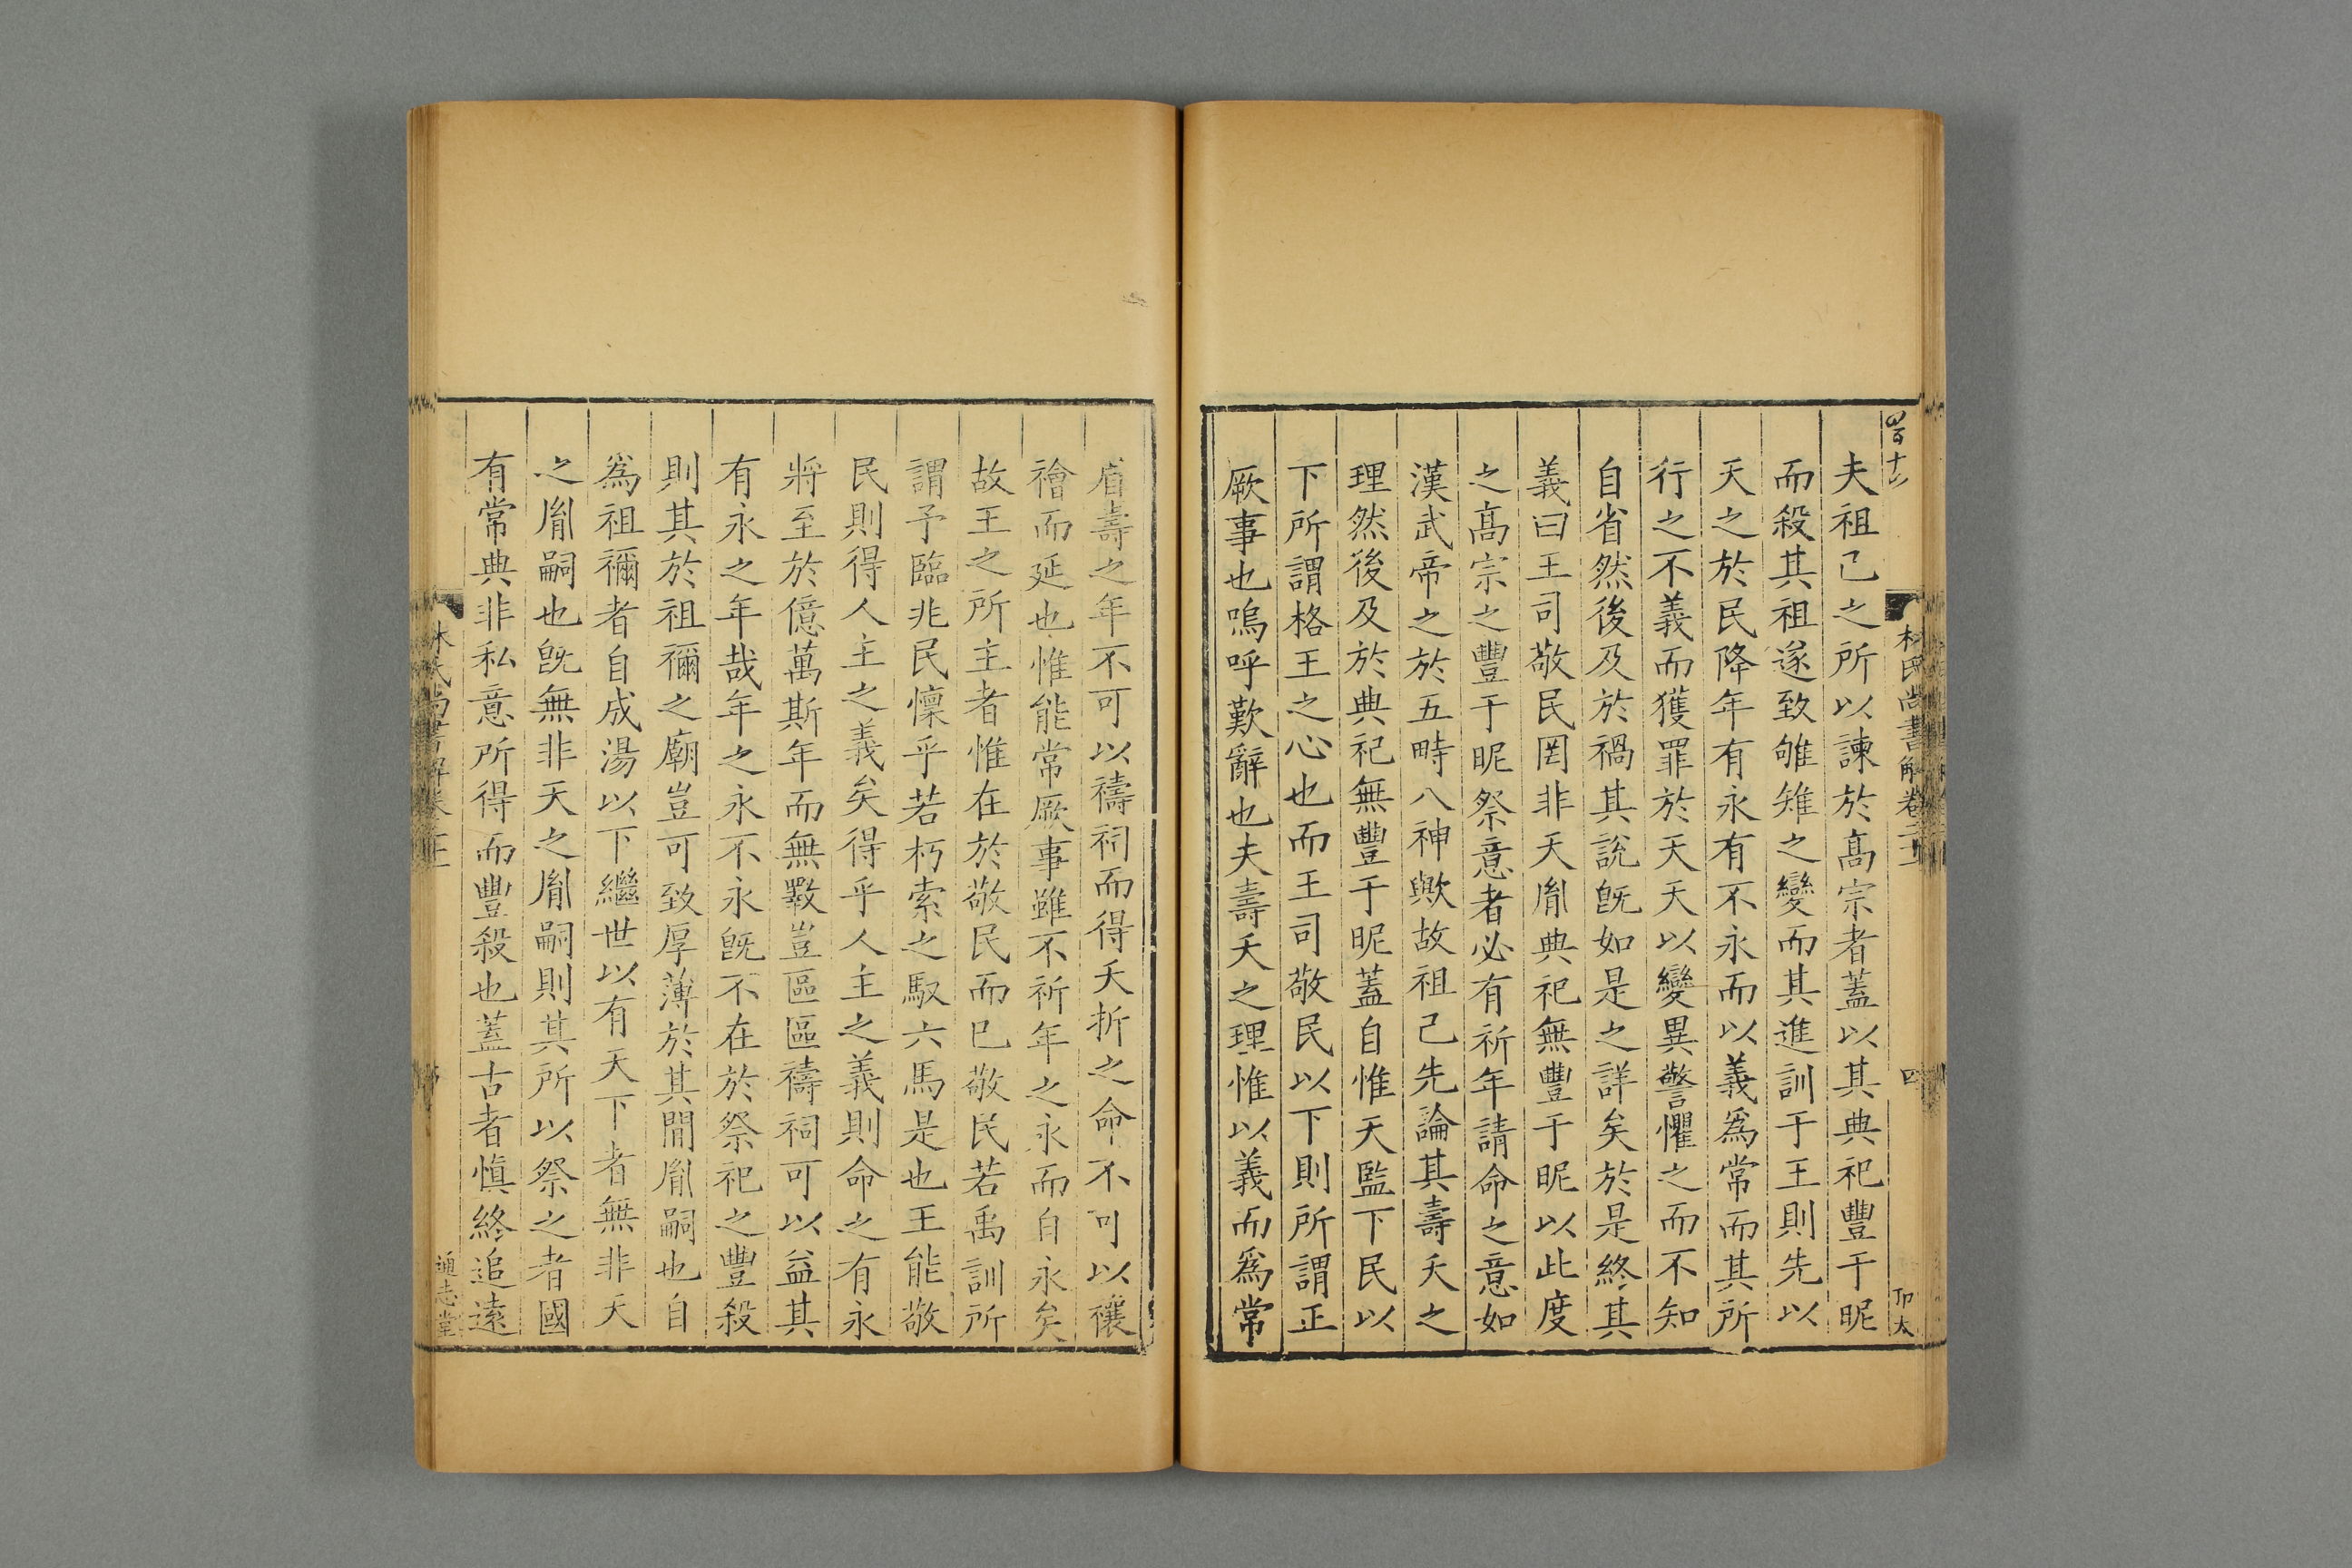 夫祖己之所以諫於高宗者蓋以其典祀豐于昵
而殺其祖遂致雊雉之變而其進訓于王則先以
天之於民降年有永有不永而以義爲常而其所
行之不義而獲罪於天天以變異警懼之而不知
自省然後及於禍其說旣如是之詳矣於是終其
義曰王司敬民罔非天胤典祀無豐于昵以此度
之高宗之豐于昵祭意者必有祈年請命之意如
漢武帝之於五畤八神歟故祖己先論其壽夭之
理然後及於典祀無豐于昵蓋自惟天監下民以
下所謂格王之心也而王司敬民以下則所謂正
厥事也嗚呼歎辭也夫壽夭之理惟以義而爲常
眉壽之年不可以禱祠而得夭折之命不可以禳
禬而延也惟能常厥事雖不祈年之永而自永矣
故王之所主者惟在於敬民而已敬民若禹訓所
謂予臨兆民懍乎若朽索之馭六馬是也王能敬
民則得人主之義矣得乎人主之義則命之有永
將至於億萬斯年而無斁豈區區禱祠可以益其
有永之年哉年之永不永旣不在於祭祀之豐殺
則其於祖禰之廟豈可致厚薄於其間胤嗣也自
爲祖禰者自成湯以下繼世以有天下者無非天
之胤嗣也旣無非天之胤嗣則其所以祭之者國
有常典非私意所得而豐殺也蓋古者愼終追遠
林氏尚書解卷
通志堂